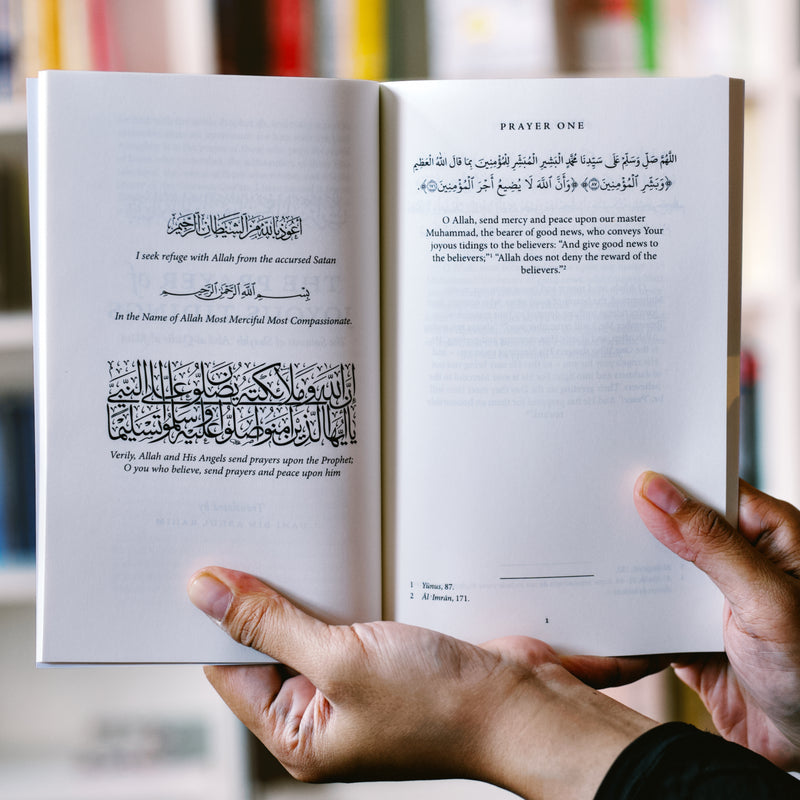 أعوذ بالله من الشيطان الرجيم
I seek refuge with Allah from the accursed Satan
بسم الله الرحمن الرحيم
In the Name of Allah Most Merciful Most Compassionate.
إن الله وملائكته يصلون على النبي
يا أيها الذين آمنوا صلوا عليه وسلموا تسليما
Verily, Allah and His Angels send prayers upon the Prophet;
O you who believe, send prayers and peace upon him
PRAYER ONE
اللَّهُمَّ صَلِّ وَسَلِّمْ عَلَى سَيِّدِنَا مُحَمَّدٍ الْبَشِيرِ الْمُبَشِّرِ لِلْمُؤْمِنِينَ بِمَا قَالَ اللهُ الْعَظِيمِ
﴿وَبَشِّرِ ٱلْمُؤْمِنِينَ ٨٧﴾ ﴿وَأَنَّ ٱللَّهَ لَا يُضِيعُ أَجْرَ ٱلْمُؤْمِنِينَ ١٧١﴾.
O Allah, send mercy and peace upon our master
Muhammad, the bearer of good news, who conveys Your
joyous tidings to the believers: “And give good news to
the believers;”1 “Allah does not deny the reward of the
believers.”2
1 Yūnus, 87.
2 Āl ʿImrān, 171.
1